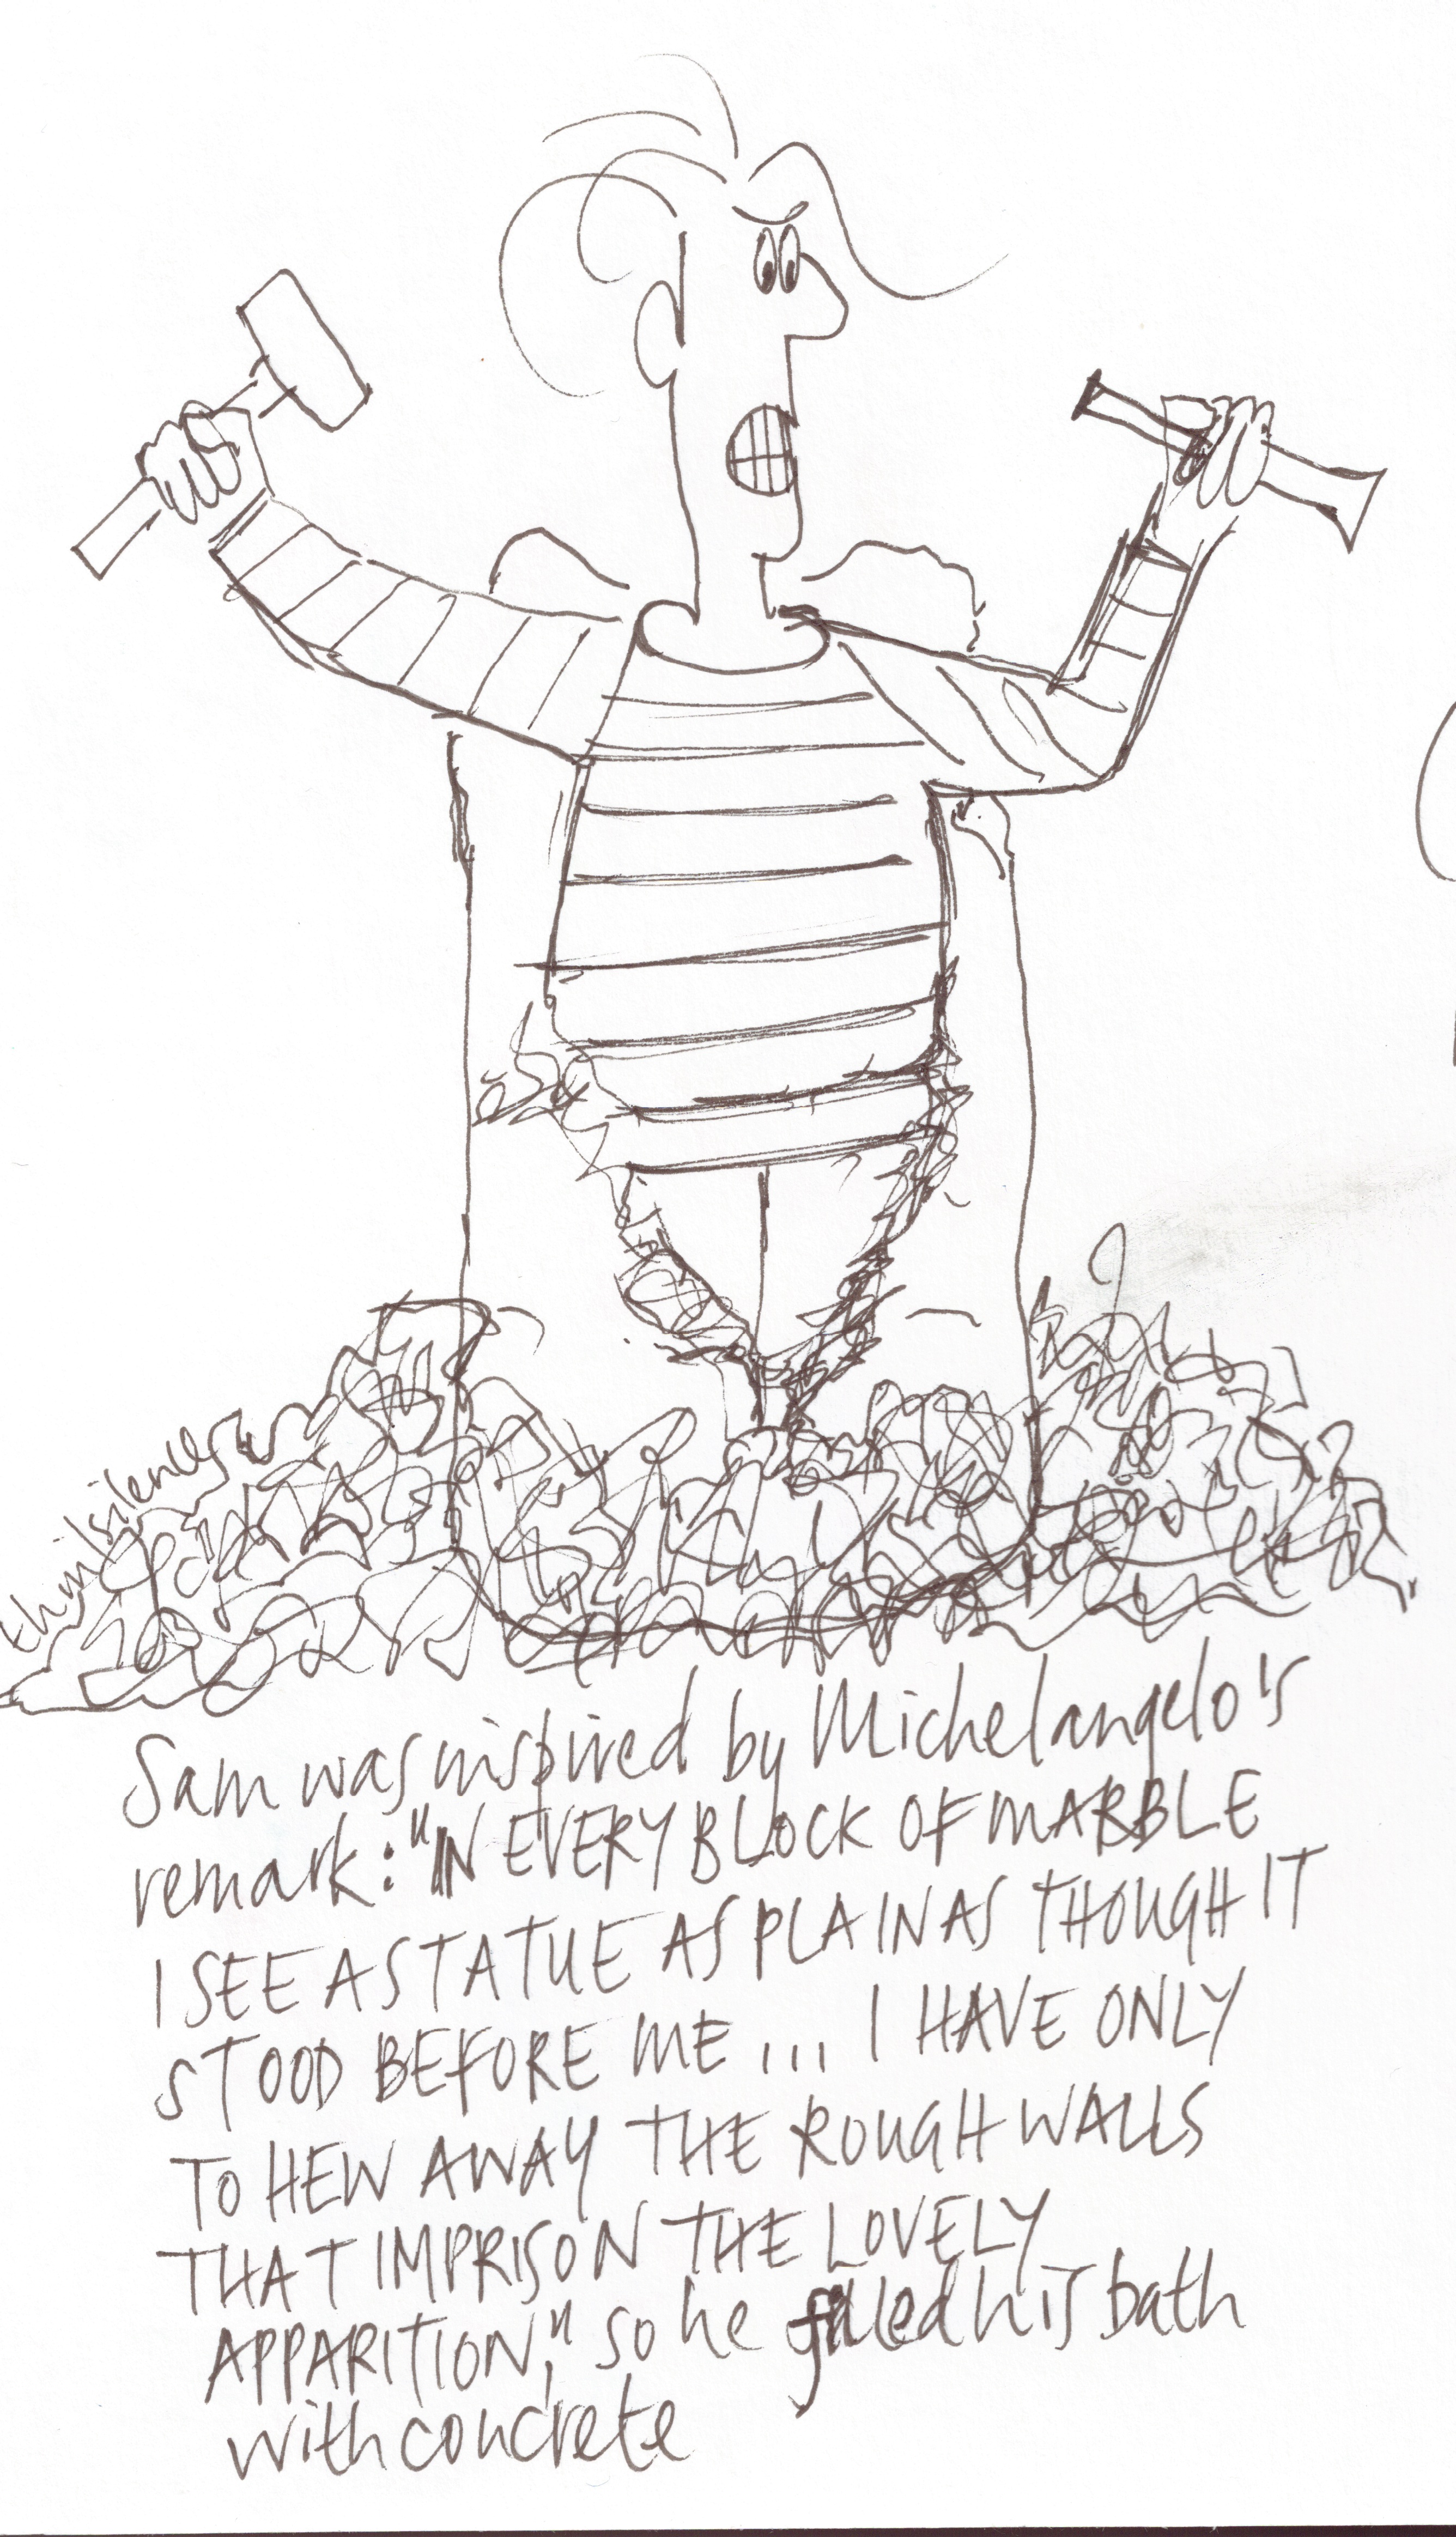 Sam was inspired by Michelangelo's
remark: "IN EVERY BLOCK OF MARBLE
I SEE A STATUE AS PLAIN AS THOUGH IT
STOOD BEFORE ME ... I HAVE ONLY
TO HEW AWAY THE ROUGH WALLS
THAT IMPRISON THE LOVELY
APPARITION," so he filled his bath
with concrete